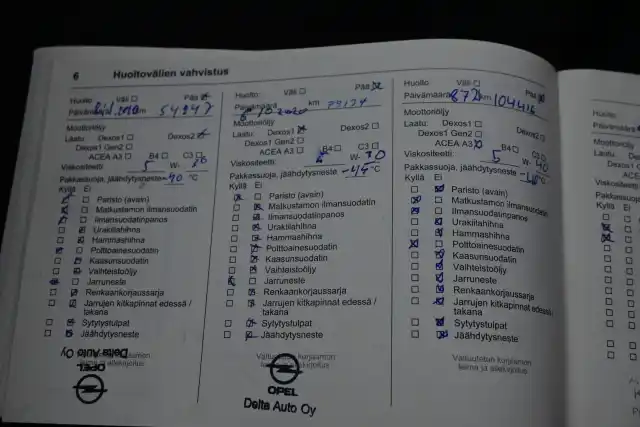 6 Huoltovälien vahvistus
Huolto: Väli Pää
Päivämäärä km 54947
Moottoriöljy
Laatu: Dexos1 Dexos2
Dexos1 Gen2
ACEA A3 B4 C3
Viskositeetti: 5 W-
Pakkassuoja, jäähdytysneste -40 °C
Kyllä Ei
Paristo (avain)
Matkustamon ilmansuodatin
Ilmansuodatinpanos
Urakiilahihna
Hammashihna
Polttoainesuodatin
Kaasunsuodatin
Vaihteistoöljy
Jarruneste
Renkaankorjaussarja
Jarrujen kitkapinnat edessä /
takana
Sytytystulpat
Jäähdytysneste
Delta Auto Oy
OPEL
Huolto: Väli Pää
Päivämäärä km
Moottoriöljy
Laatu: Dexos1 Dexos2
Dexos1 Gen2
ACEA A3 B4 C3
Viskositeetti: W- 30
Pakkassuoja, jäähdytysneste °C
Kyllä Ei
Paristo (avain)
Matkustamon ilmansuodatin
Ilmansuodatinpanos
Urakiilahihna
Hammashihna
Polttoainesuodatin
Kaasunsuodatin
Vaihteistoöljy
Jarruneste
Renkaankorjaussarja
Jarrujen kitkapinnat edessä /
takana
Sytytystulpat
Jäähdytysneste
OPEL
Delta Auto Oy
Huolto: Väli Pää
Päivämäärä km 104416
Moottoriöljy
Laatu: Dexos1 Dexos2
Dexos1 Gen2
ACEA A3 B4 C3
Viskositeetti: 5 W- 40
Pakkassuoja, jäähdytysneste °C
Kyllä Ei
Paristo (avain)
Matkustamon ilmansuodatin
Ilmansuodatinpanos
Urakiilahihna
Hammashihna
Polttoainesuodatin
Kaasunsuodatin
Vaihteistoöljy
Jarruneste
Renkaankorjaussarja
Jarrujen kitkapinnat edessä /
takana
Sytytystulpat
Jäähdytysneste
Valtuutetun korjaamon
leima ja allekirjoitus